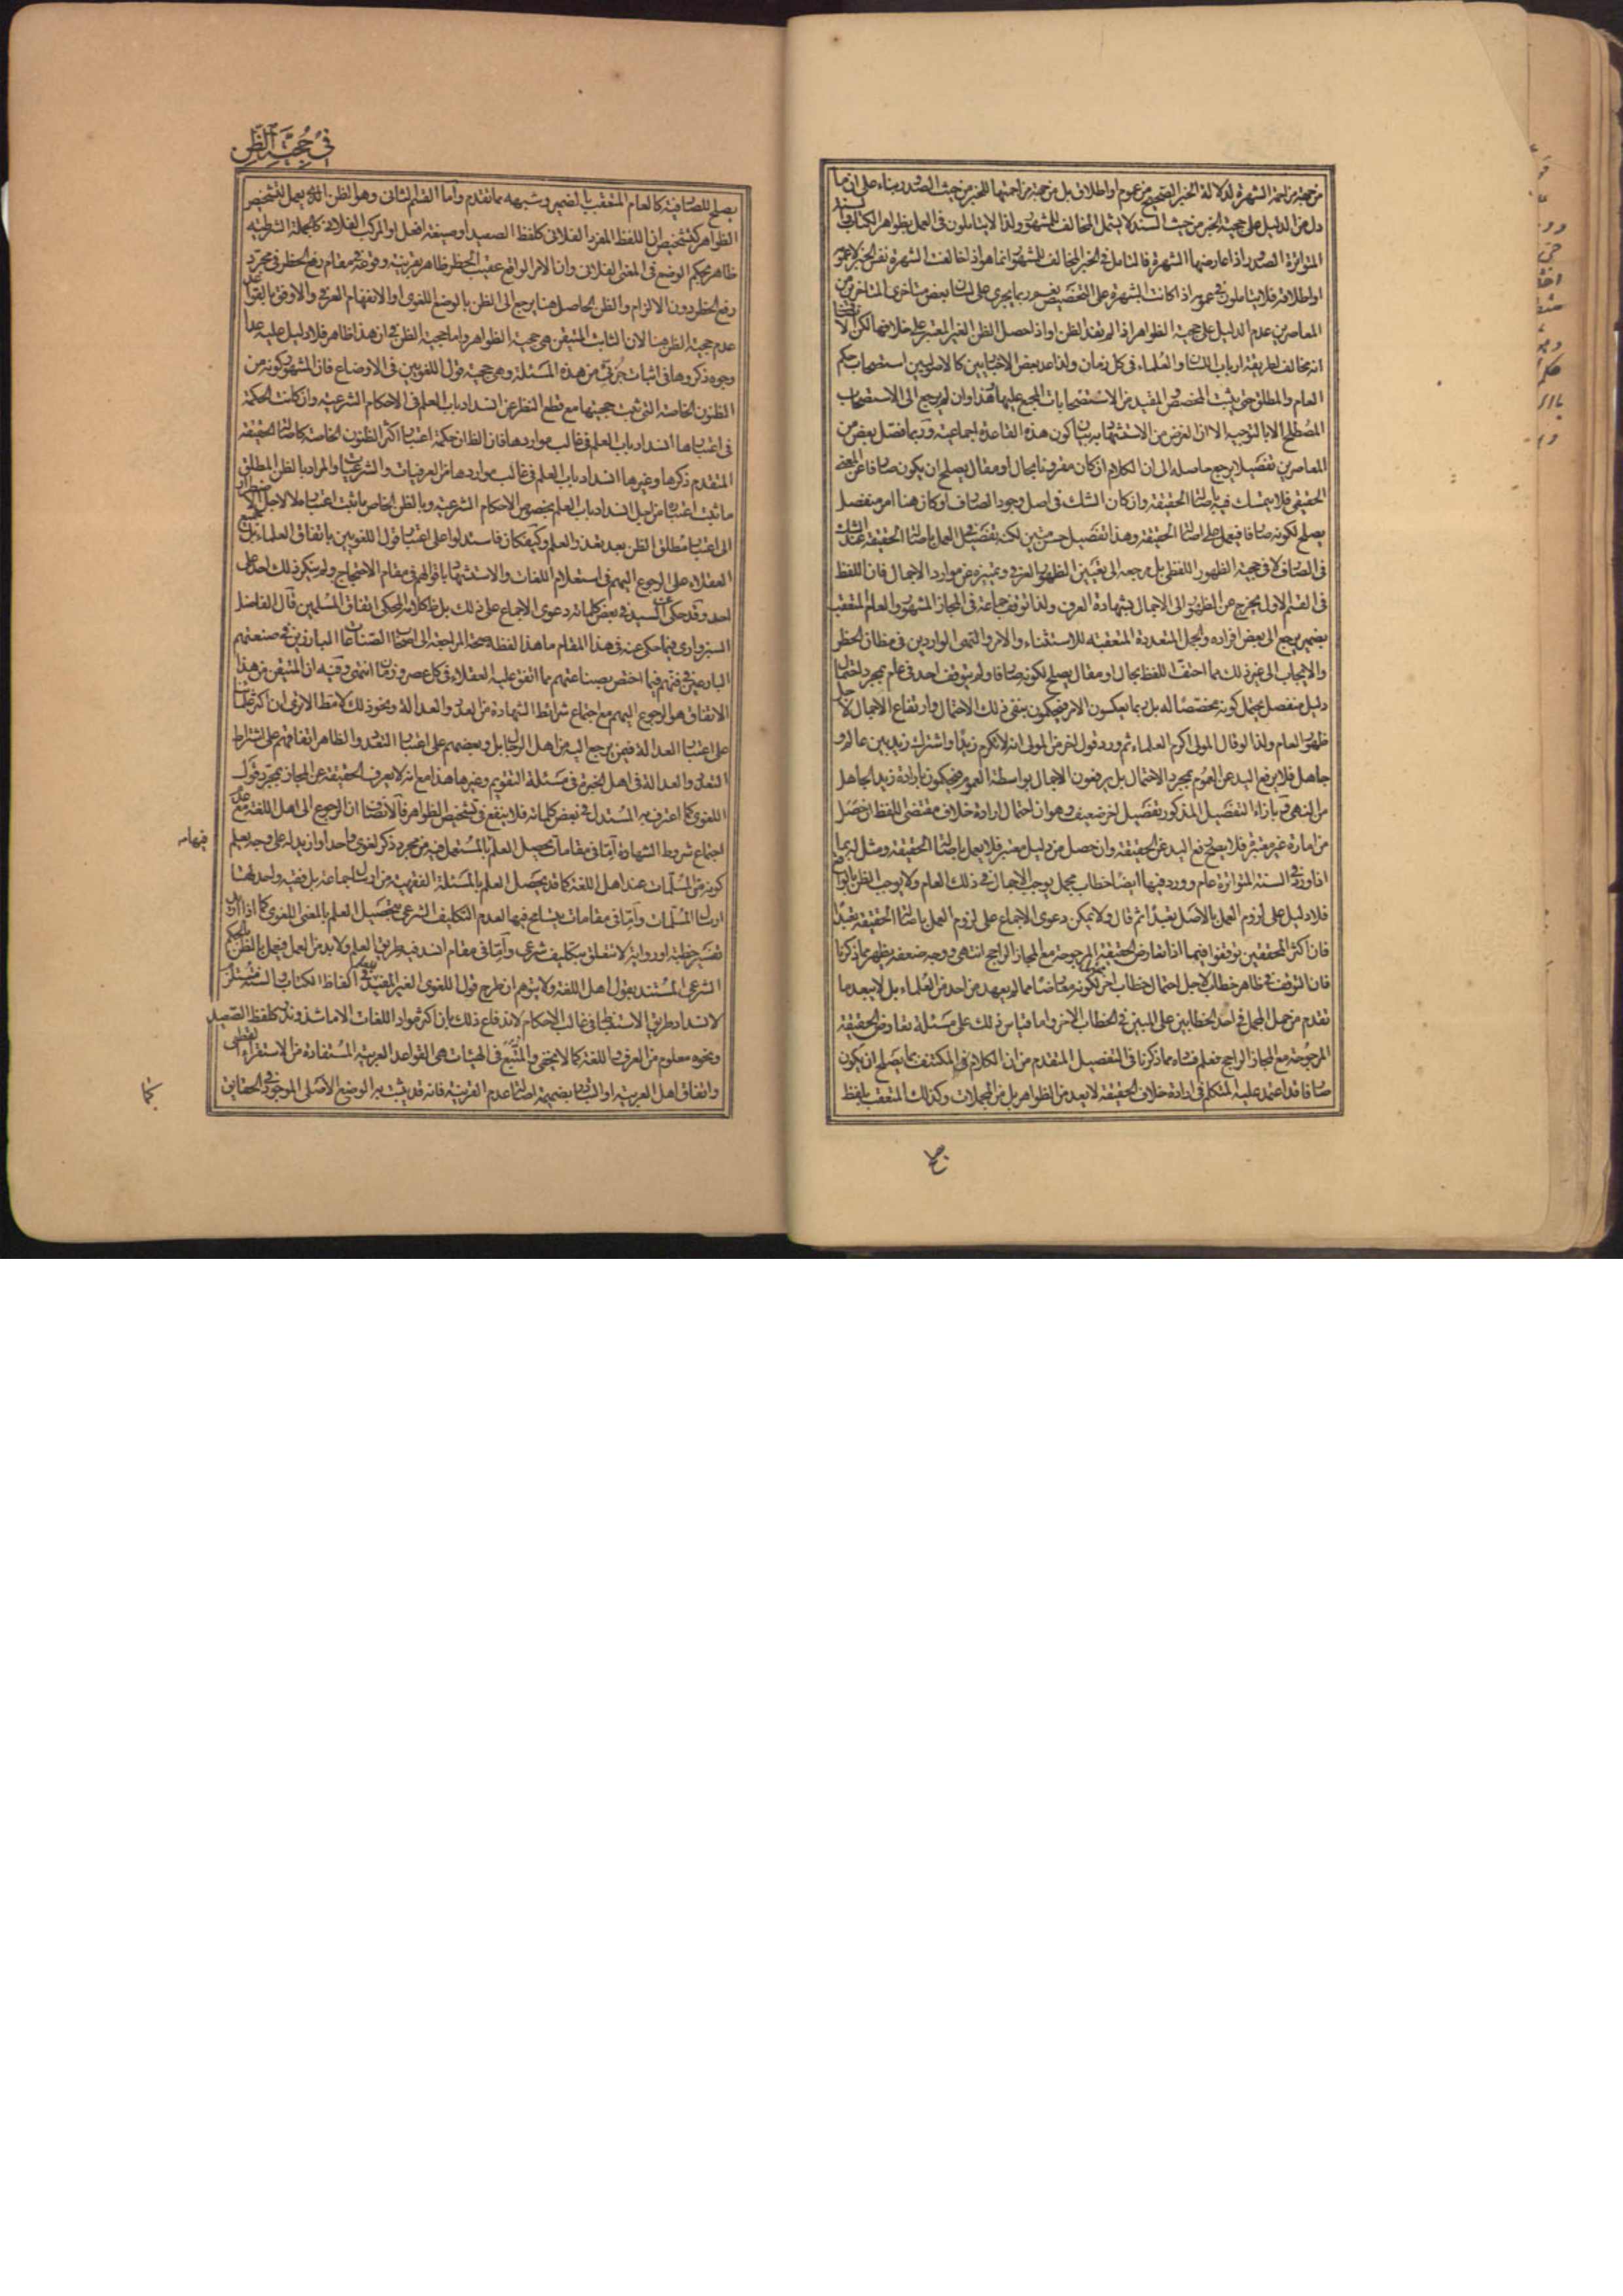 من جهة مزاحمة الشهرة لدلالة الخبر الصحيح من عموم او اطلاق بل من جهة مزاحمتها للخبر من حيث الصدور بناء على ان ما
دل من الدليل على حجية الخبر من حيث السند لا يشمل المخالف للمشهور ولذا لا يتاملون فى العمل بظواهر الكتاب والسنة
المتواترة الصدور اذا عارضها الشهرة فالتامل فى الخبر المخالف للمشهور انما هو اذا خالفت الشهرة نفس الخبر لا عمومه
او اطلاقه فلا يتاملون فى عمومه اذا كانت الشهرة على التخصيص نعم ربما يجرى على لسان بعض متاخرى المتاخرين من
المعاصرين عدم الدليل على حجية الظواهر اذا لم يفد الظن او اذا حصل الظن الغير المعتبر على خلافها لكن الانصاف
انه مخالف لطريقة ارباب اللسان والعلماء فى كل زمان ولذا عد بعض الاخباريين كالاصوليين استصحاب حكم
العام والمطلق حتى يثبت المخصص والمقيد من الاستصحابات المجمع عليها هذا وان لم يرجع الى الاستصحاب
المصطلح الا بالتوجيه الا ان الغرض من الاستشهاد به بيان كون هذه القاعدة اجماعية وربما فصل بعض من
المعاصرين تفصيلا يرجع حاصله الى ان الكلام ان كان مقرونا بحال او مقال يصلح ان يكون صارفا عن المعنى
الحقيقى فلا يتمسك فيه باصالة الحقيقة وان كان الشك فى اصل وجود الصارف او كان هنا امر منفصل
يصلح لكونه صارفا فيعمل على اصالة الحقيقة وهذا تفصيل حسن متين لكنه تفصيل فى العمل باصالة الحقيقة عند الشك
فى الصارف لا فى حجية الظهور اللفظى بل مرجعه الى تعيين الظهور العرفى وتميزه عن موارد الاجمال فان اللفظ
فى القسم الاول يخرج عن الظهور الى الاجمال بشهادة العرف ولذا توقف جماعة فى المجاز المشهور والعام المتعقب
بضمير يرجع الى بعض افراده والجمل المتعددة المتعقبه للاستثناء والامر والنهى الواردين فى مظان الحظر
والايجاب الى غير ذلك مما احتف اللفظ بحال او مقال يصلح لكونه صارفا ولم يتوقف احد فى عام بمجرد احتمال
دليل منفصل يحتمل كونه مخصصا له بل ربما يعكسون الامر فيحكمون بنفى ذلك الاحتمال وارتفاع الاجمال لاجل
ظهور العام ولذا لو قال المولى اكرم العلماء ثم ورد قول اخر من المولى انه لا تكرم زيدا واشترك زيد بين عالم و
جاهل فلا يرفع اليد عن العموم بمجرد الاحتمال بل يرفعون الاجمال بواسطة العموم فيحكمون بارادة زيد الجاهل
من النهى وبازاء التفصيل المذكور تفصيل اخر ضعيف وهو ان احتمال ارادة خلاف مقتضى اللفظ ان حصل
من امارة غير معتبرة فلا يصح رفع اليد عن الحقيقة وان حصل من دليل معتبر فلا يعمل باصالة الحقيقة ومثل له بما
اذا ورد فى السنة المتواترة عام وورد فيها ايضا خطاب مجمل يوجب الاجمال فى ذلك العام ولا يوجب الظن بالواقع
فلا دليل على لزوم العمل بالاصل تعبدا ثم قال ولا يمكن دعوى الاجماع على لزوم العمل باصالة الحقيقة تعبدا
فان اكثر المحققين توقفوا فيما اذا تعارض الحقيقة المرجوحة مع المجاز الراجح انتهى ووجه ضعفه يظهر مما ذكرنا
فان التوقف فى ظاهر خطاب لاجل احتمال خطاب اخر لكونه معارضا مما لم يعهد من احد من العلماء بل لا يبعد ما
تقدم من حمل المجمل فى احد الخطابين على المبين فى الخطاب الاخر واما قياس ذلك على مسئلة تعارض الحقيقة
المرجوحة مع المجاز الراجح فعلم فساده مما ذكرنا فى التفصيل المتقدم من ان الكلام المكتنف بما يصلح ان يكون
صارفا قد اعتمد عليه المتكلم فى ارادة خلاف الحقيقة لا يعد من الظواهر بل من المجملات وكذلك المتعقب بلفظ
فى حجية الظن
يصلح للصارفية كالعام المتعقب بالضمير وشبهه مما تقدم واما القسم الثانى وهو الظن الذى يعمل لتشخيص
الظواهر كتشخيص ان اللفظ المفرد الفلانى كلفظ الصعيد او صيغة افعل او المركب الفلانى كالجملة الشرطية
ظاهر بحكم الوضع فى المعنى الفلانى وان الامر الواقع عقيب الحظر ظاهر بقرينة وقوعه فى مقام رفع الحظر فى مجرد
رفع الحظر دون الالزام والظن الحاصل هنا يرجع الى الظن بالوضع اللغوى او الانفهام العرفى والاوفق بالقواعد
عدم حجية الظن هنا لان الثابت المتيقن هى حجية الظواهر واما حجية الظن فى ان هذا ظاهر فلا دليل عليه عدا
وجوه ذكروها فى اثبات جزئى من هذه المسئلة وهى حجية قول اللغويين فى الاوضاع فان المشهور كونه من
الظنون الخاصة التى ثبت حجيتها مع قطع النظر عن انسداد باب العلم فى الاحكام الشرعية وان كانت الحكمة
فى اعتبارها انسداد باب العلم فى غالب مواردها فان الظاهر ان حكمة اعتبار اكثر الظنون الخاصة كاصالة الحقيقة
المتقدم ذكرها وغيرها انسداد باب العلم فى غالب مواردها من العرفيات والشرعيات والمراد بالظن المطلق
ما ثبت اعتباره من اجل انسداد باب العلم بخصوص الاحكام الشرعية وبالظن الخاص ما ثبت اعتباره لا لاجل الاضطرار
الى اعتبار مطلق الظن بعد تعذر العلم وكيف كان فاستدلوا على اعتبار قول اللغويين باتفاق العلماء بل جميع
العقلاء على الرجوع اليهم فى استعلام اللغات والاستشهاد باقوالهم فى مقام الاحتجاج ولم ينكر ذلك احد على
احد وقد حكى عن السيد فى بعض كلماته دعوى الاجماع على ذلك بل ظاهر كلامه المحكى اتفاق المسلمين قال الفاضل
السبزوارى فيما حكى عنه فى هذا المقام ما هذا لفظه صحة المراجعة الى اصحاب الصناعات البارزين فى صنعتهم
البارعين فى فنهم فيما اختص بصناعتهم مما اتفق عليه العقلاء فى كل عصر وزمان انتهى وفيه ان المتيقن من هذا
الاتفاق هو الرجوع اليهم مع اجتماع شرائط الشهادة من العدد والعدالة ونحو ذلك لا مطلقا الا ترى ان اكثر علمائنا
على اعتبار العدالة فيمن يرجع اليه من اهل الرجال بل وبعضهم على اعتبار التعدد والظاهر اتفاقهم على اشتراط
التعدد والعدالة فى اهل الخبرة فى مسئلة التقويم وغيرها هذا مع انه لا يعرف الحقيقة عن المجاز بمجرد قول
اللغوى كما اعترف به المستدل فى بعض كلماته فلا ينفع فى تشخيص الظواهر فالانصاف ان الرجوع الى اهل اللغة مع عدم
اجتماع شروط الشهادة اما فى مقامات يحصل العلم بالمستعمل فيه من مجرد ذكر لغوى واحد او ازيد له على وجه يعلم
كونه من المسلمات عند اهل اللغة كما قد يحصل العلم بالمسئلة الفقهية من ارسال جماعة بل فقيه واحد لها
ارسال المسلمات واما فى مقامات يتسامح فيها لعدم التكليف الشرعى بتحصيل العلم بالمعنى اللغوى كما اذا اراد
تفسير خطبة او رواية لا تتعلق بتكليف شرعى واما فى مقام انسد فيه طريق العلم ولا بد من العمل فيعمل بالظن بالحكم
الشرعى المستند بقول اهل اللغة ولا يتوهم ان طرح قول اللغوى الغير المفيد للعلم فى الفاظ الكتاب والسنة مستلزم
لانسداد طريق الاستنباط فى غالب الاحكام لاندفاع ذلك بان اكثر مواد اللغات الا ما شذ وندر كلفظ الصعيد
ونحوه معلوم من العرف واللغة كما لا يخفى والمتبع فى الهيئات هى القواعد العربية المستفادة من الاستقراء القطعى
واتفاق اهل العربية او التبادر بضميمة اصالة عدم القرينة فانه قد يثبت به الوضع الاصلى الموجود فى الحقايق
كما